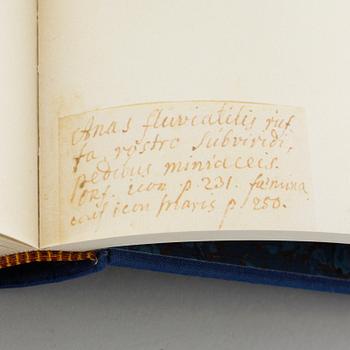 Anas fluviatilis ruf
fa, rostro subviridi,
pedibus miniaceis.
icon p. 231. fœmina
icon maris p. 250.